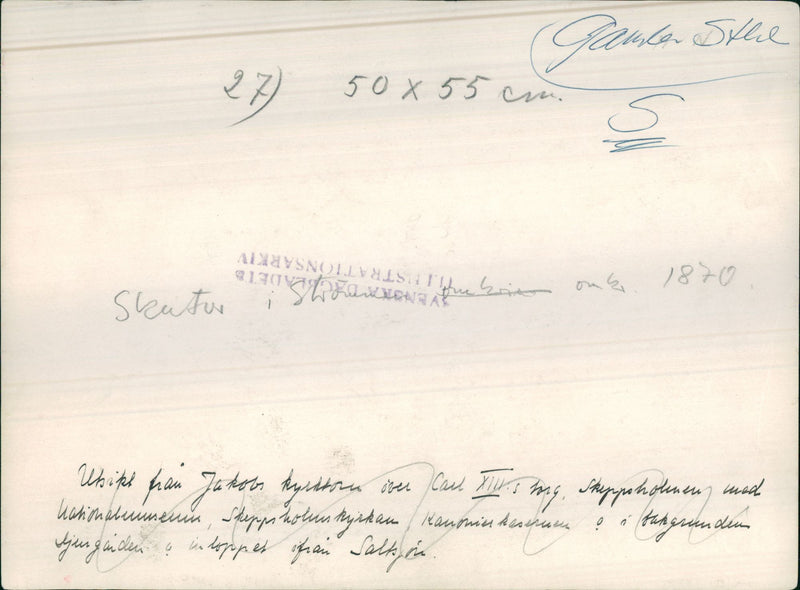 Gamla Sthlm
27) 50 x 55 cm.
S
SVENSKA DAGBLADETS
ILLUSTRATIONSARKIV
Skutor i Strömmen omkring omkr. 1870.
Utsikt från Jakobs kyrktorn över Carl XIII:s torg, Skeppsholmen med
Nationalmuseum, Skeppsholmskyrkan, Kanonierkasernen o i bakgrunden
Djurgården o inloppet ifrån Saltsjön.